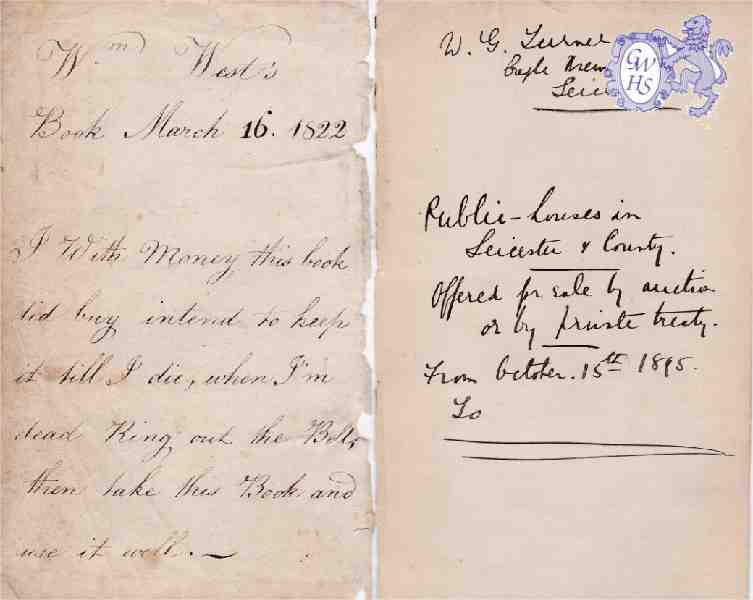 Wm West's
Book March 16. 1822
I With Money this book
did buy intend to keep
it till I die, when I'm
dead Ring out the Bells,
then take this Book and
use it well. —
W. G.
Eagle
Public-houses in
Leicester & County.
Offered for sale by auction
or by private treaty.
From October. 15th 1895.
To
GW
HS